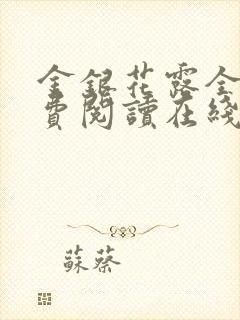 金銀花露全
費閱讀在綫
蘇蔡